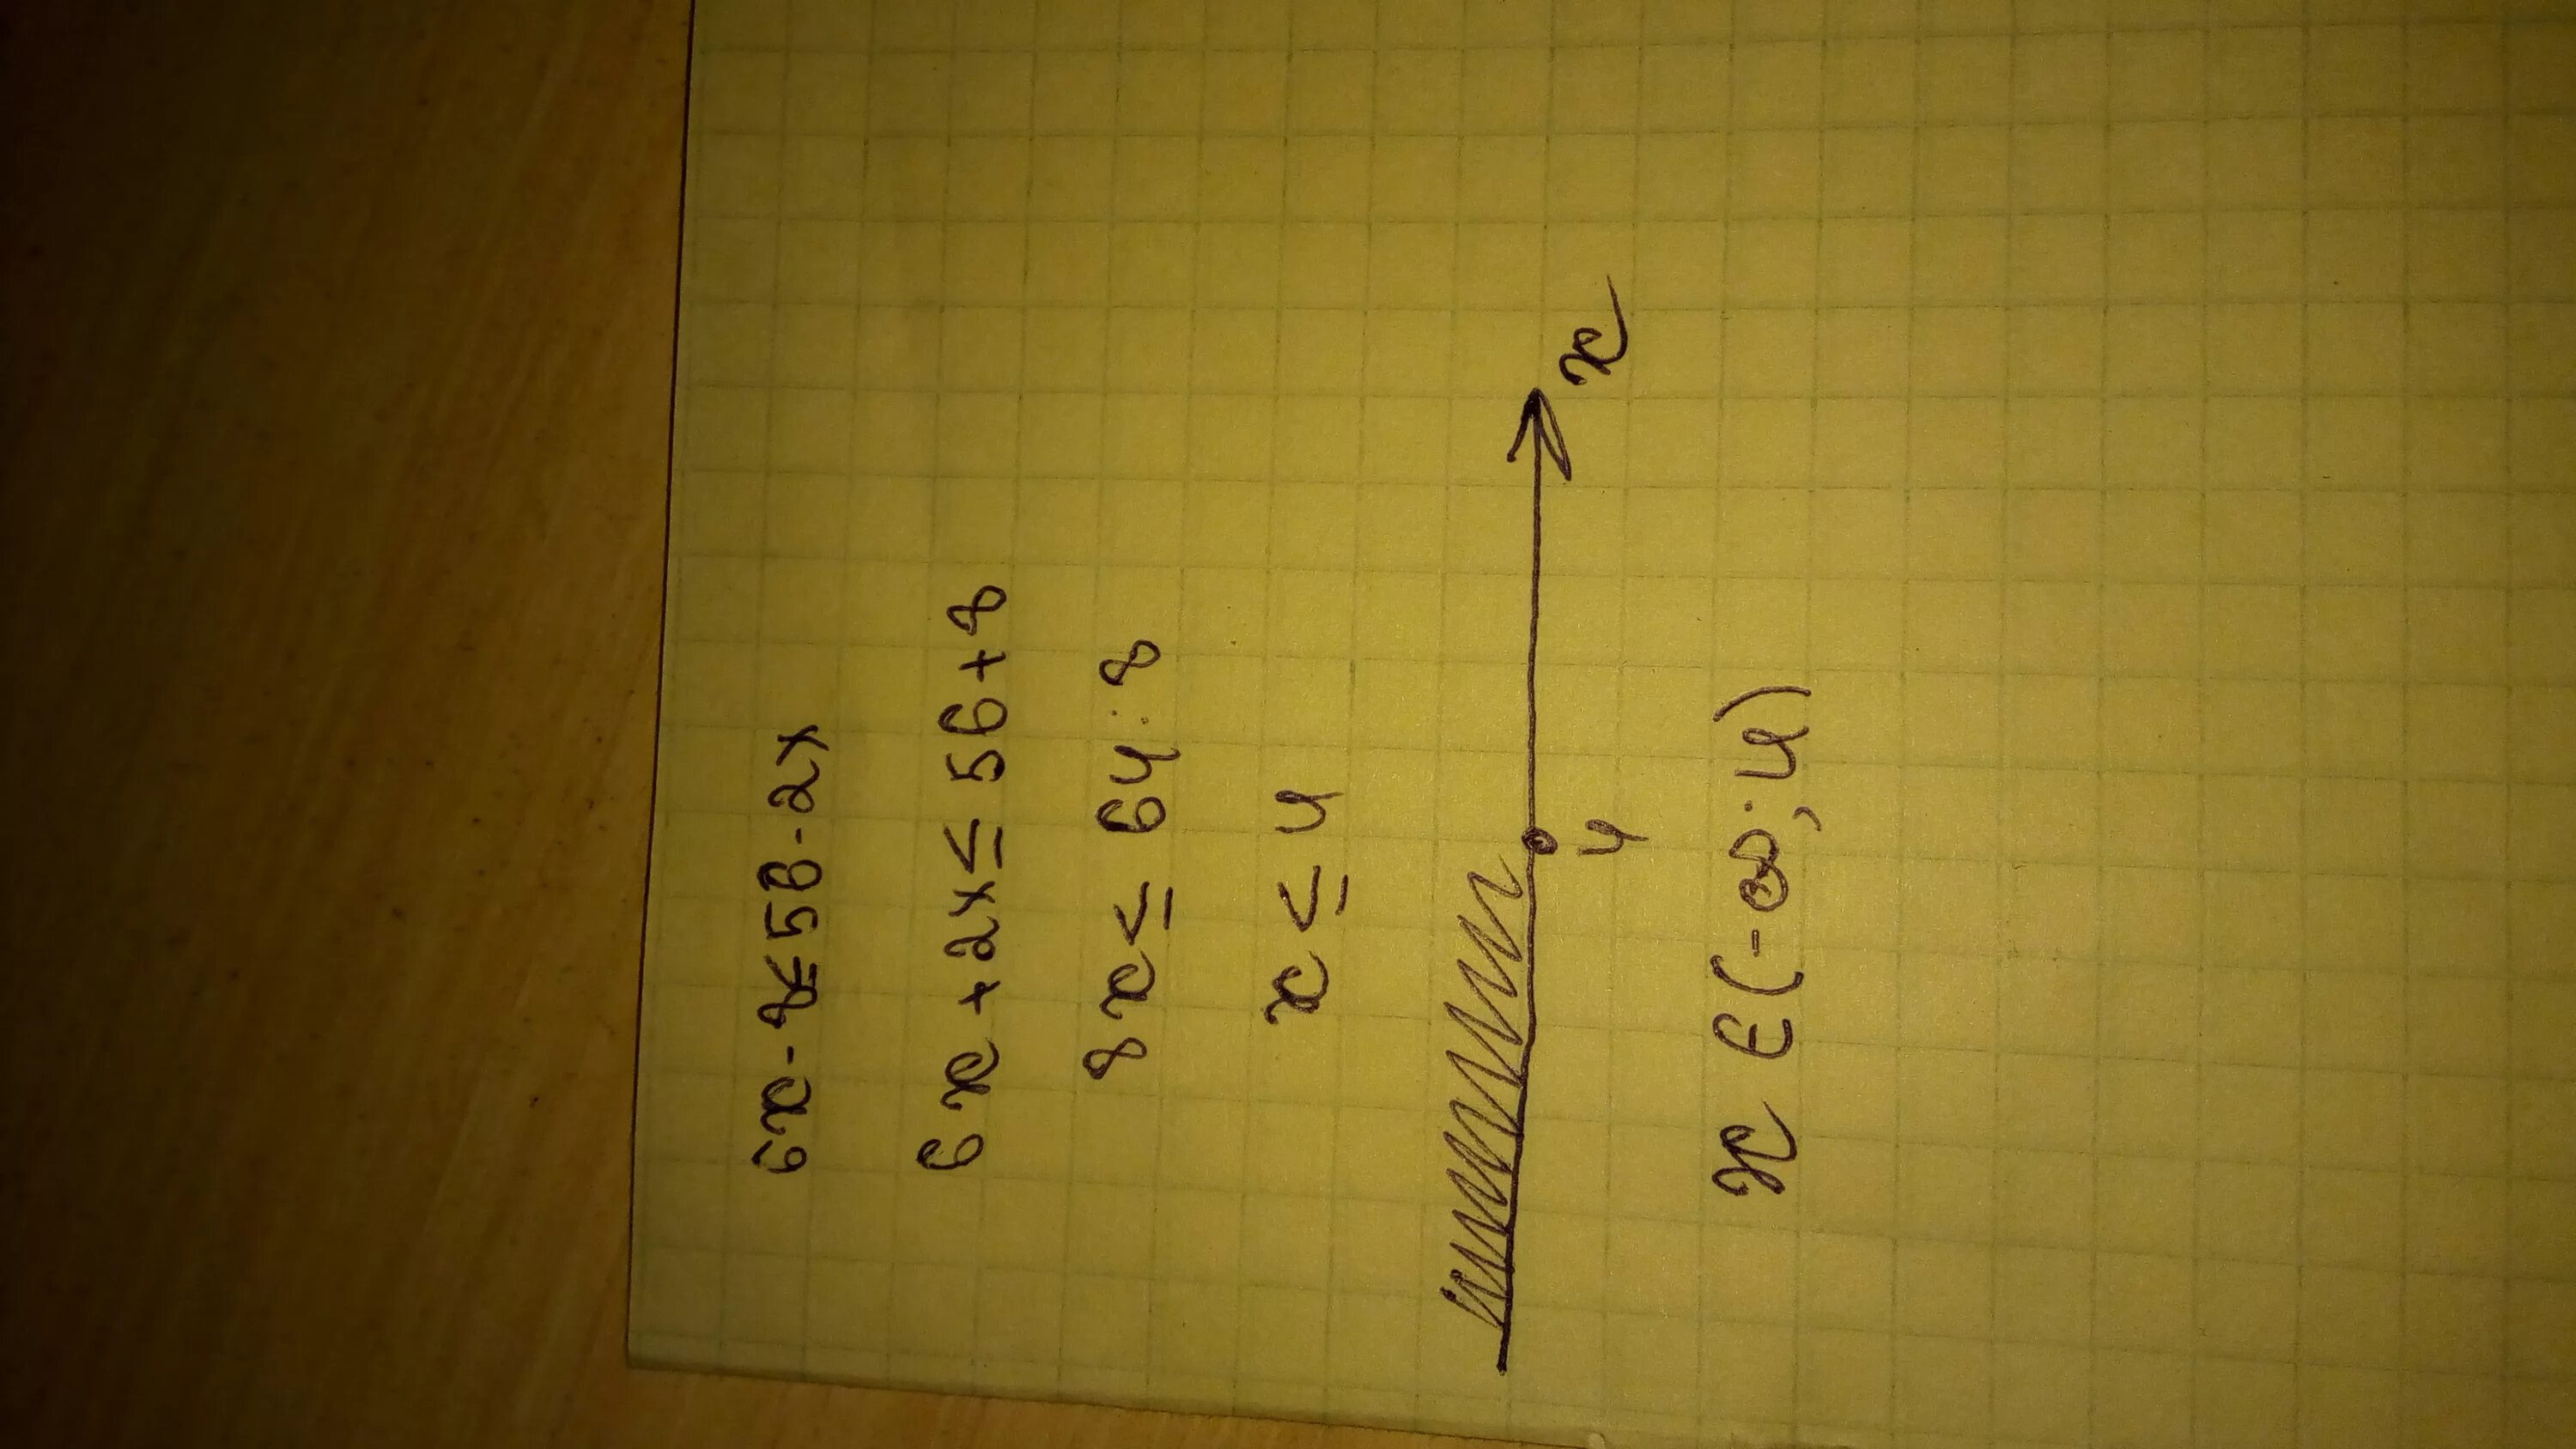 6x-8≤56-2x
6x+2x≤56+8
8x≤64:8
x≤4
x
4
x∈(-∞;4)